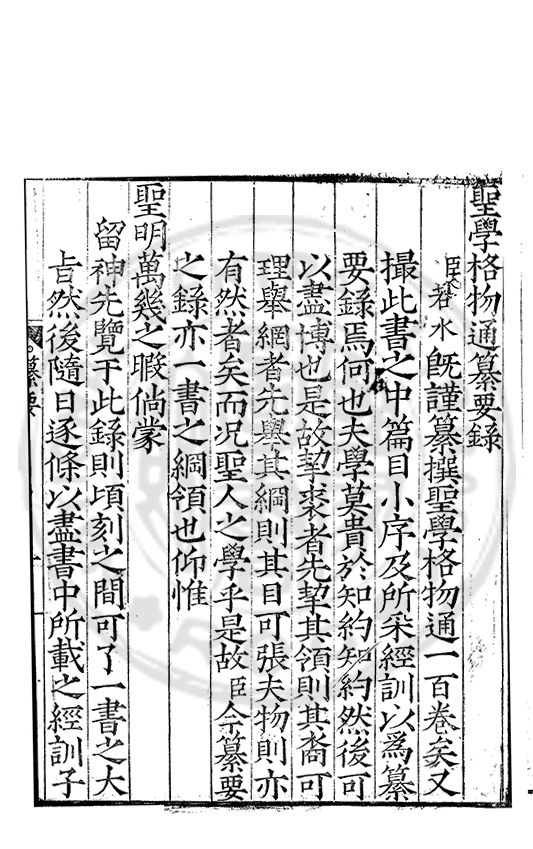 聖學格物通纂要錄
臣若水既謹纂撰聖學格物通一百卷矣又
撮此書之中篇目小序及所采經訓以爲纂
要錄焉何也夫學莫貴於知約知約然後可
以盡博也是故挈裘者先挈其領則其裔可
理舉網者先舉其綱則其目可張夫物則亦
有然者矣而况聖人之學乎是故臣今纂要
之錄亦一書之綱領也仰惟
聖明萬幾之暇倘蒙
留神先覽于此錄則頃刻之間可了一書之大
旨然後隨日逐條以盡書中所載之經訓子
纂要
一